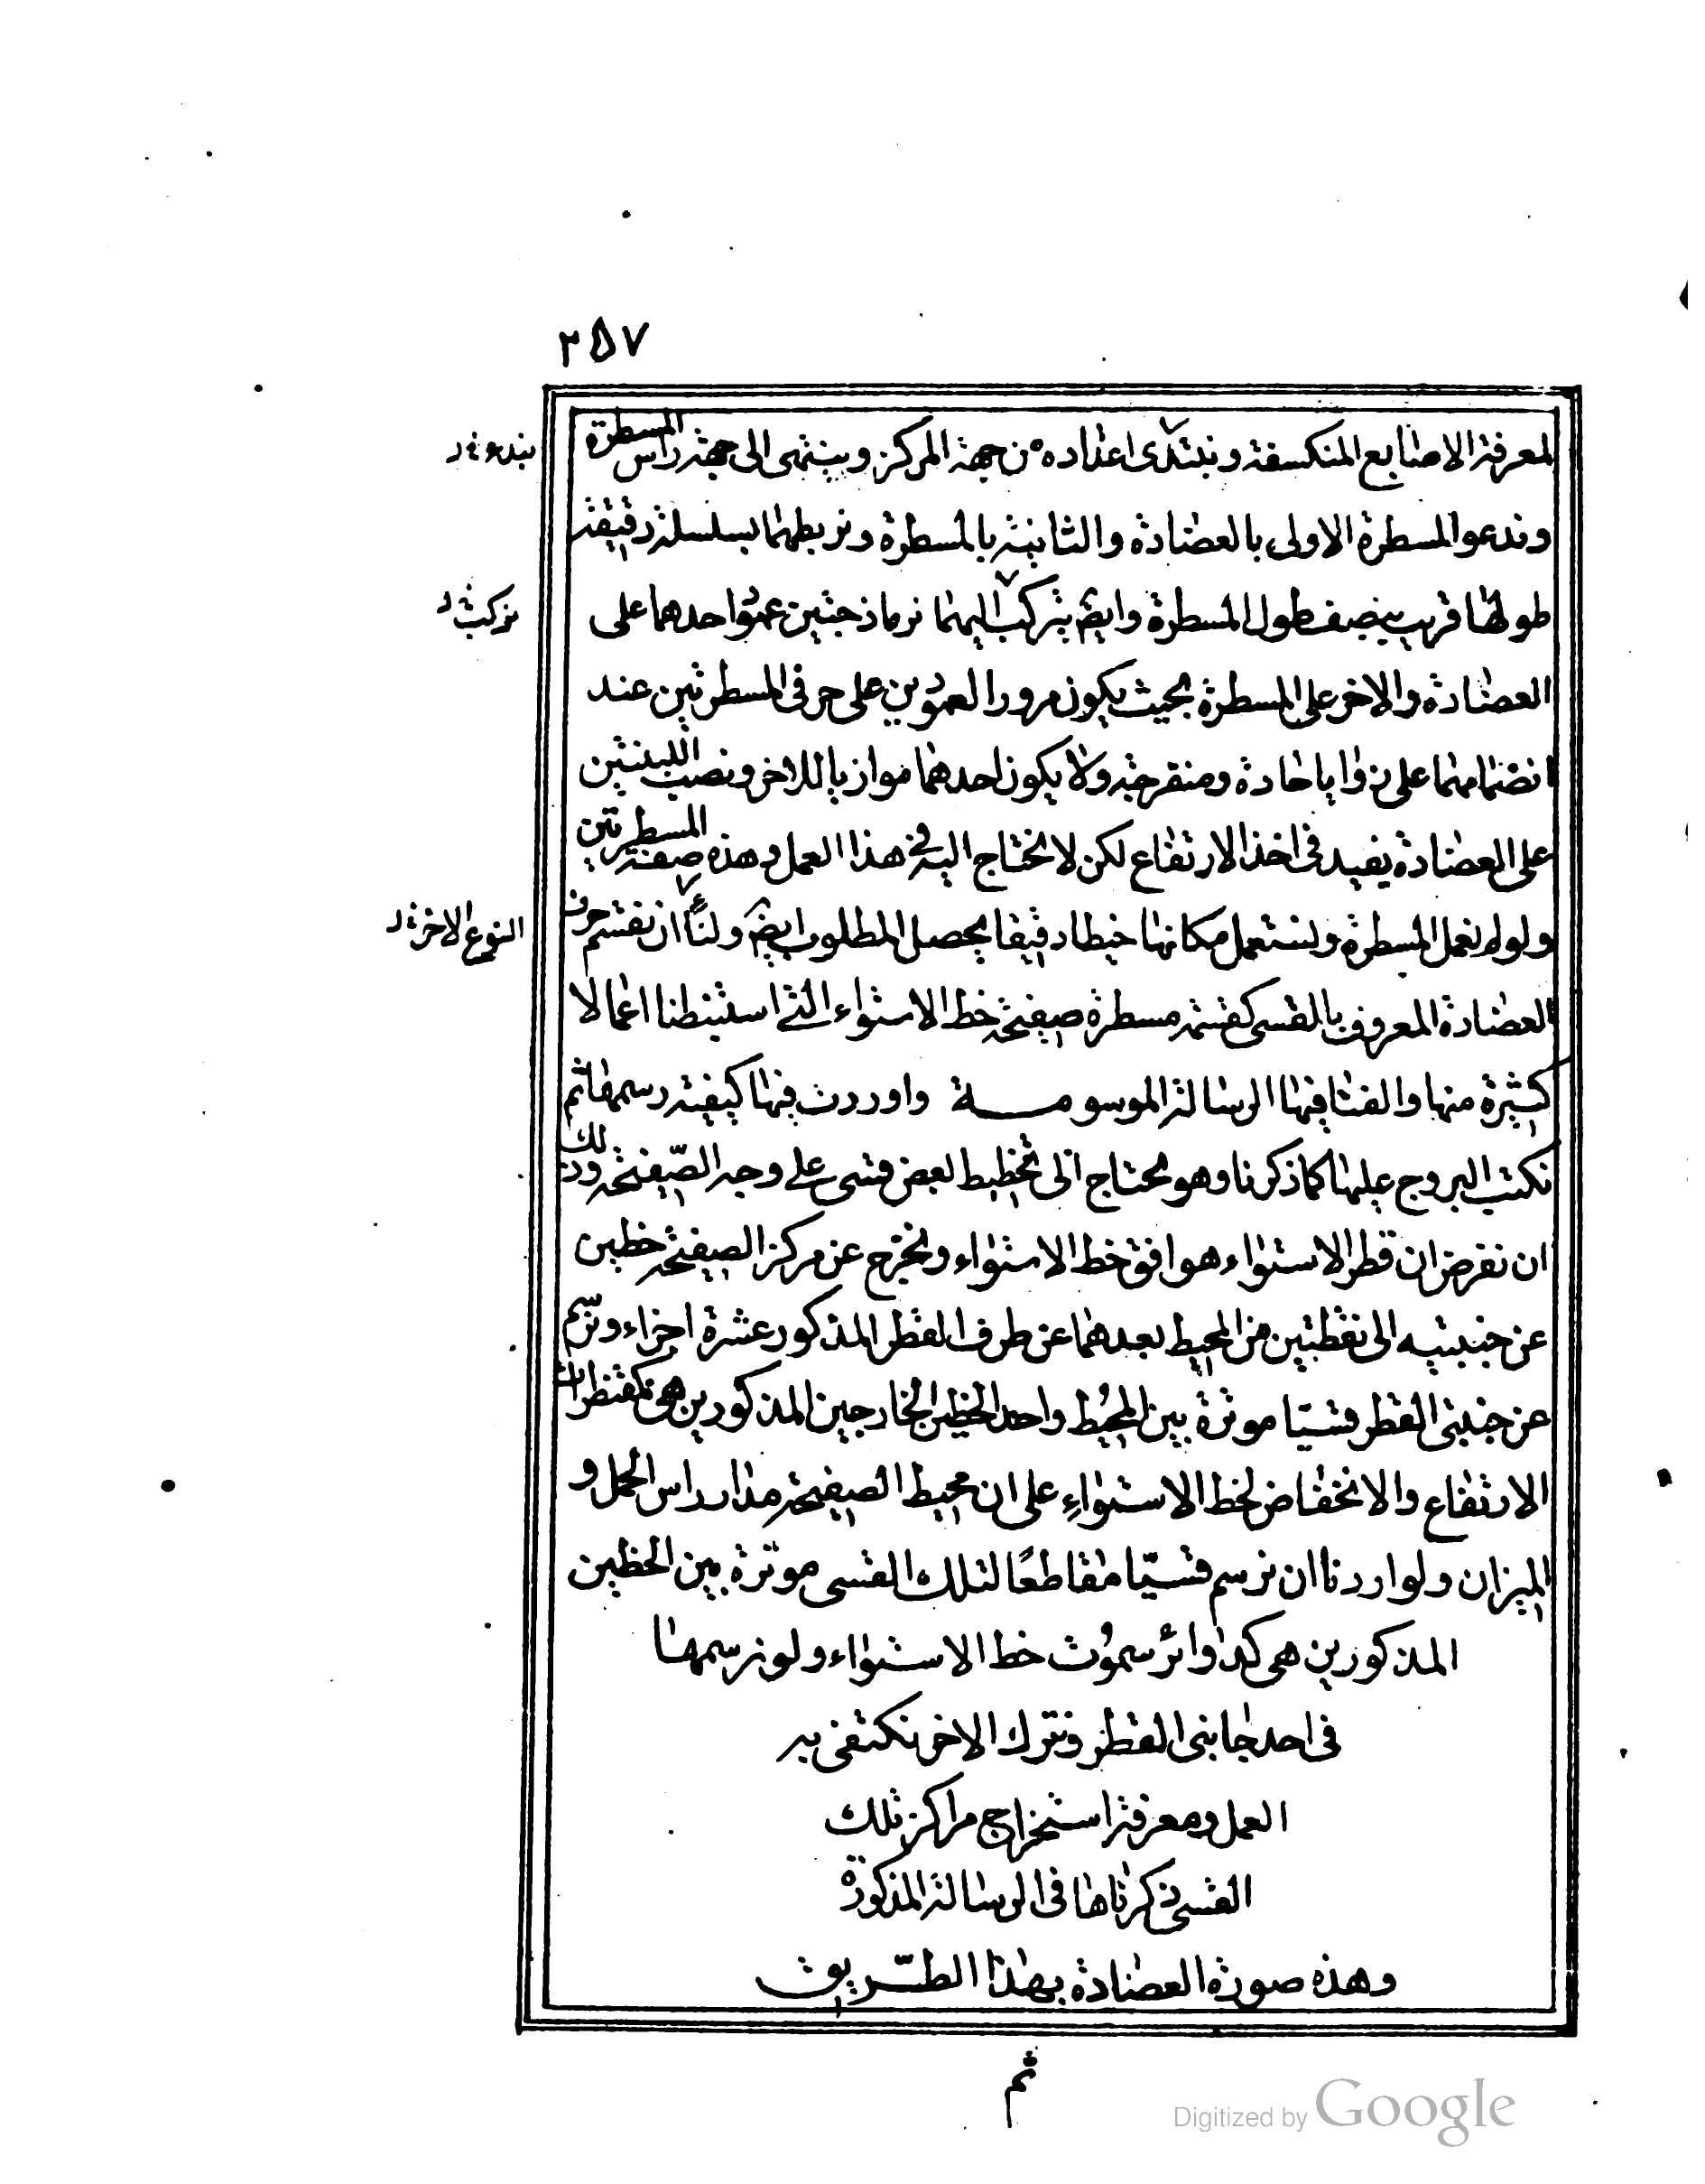 ٢٥٧
لمعرفة الاصابع المنكسفة ونبتدى اعداده من جهة المركز وينتهى الى جهة راس المسطرة
وندعو المسطرة الاولى بالعضادة والثانية بالمسطرة ونربطهما بسلسلة دقيقة
طولها قريب بنصف طول المسطرة وايضً يتركب اليهما نرماذجتين عمود احدهما على
العضادة والاخر على المسطرة بحيث يكون مرور العمودين على حرفى المسطرتين عند
انضمامهما على زوايا حادة ومنفرجة ولا يكون احدهما موازيا للاخر ونصب اللبنتين
على العضادة يفيد فى اخذ الارتفاع لكن لا نحتاج اليه فى هذا العمل وهذه صفة المسطرتين
ولو لم نعمل المسطرة ونستعمل مكانها خيطا دقيقا يحصل المطلوب ايضً ولنا ان نقسم حرف
العضادة المعروف بالقسى كقسمة مسطرة صفيحة خط الاستواء التى استنبطنا اعمالا
كثيرة منها والفنا فيها الرسالة الموسومة واوردت فيها كيفية رسمها ثم
نكتب البروج عليها كما ذكرنا وهو محتاج الى تخطيط بعض قسى على وجه الصّفيحة وذلك
ان نفرض ان قطر الاستواء هو افق خط الاستواء ونخرج عن مركز الصفيحة خطين
عن جنبتيه الى نقطتين من المحيط بعدهما عن طرف القطر المذكور عشرة اجزاء ونرسم
عن جنبتى القطر قسيّا موترة بين المحيط واحد الخطين الخارجين المذكورين هى كمقنطرات
الارتفاع والانخفاض لخط الاستواء على ان محيط الصفيحة مدار راس الحمل و
الميزان ولو اردنا ان نرسم قسيّا مقاطعًا لتلك القسى موترة بين الخطين
المذكورين هى كدوائر سموت خط الاستواء ولو نرسمها
فى احد جانبى القطر ونترك الاخر نكتفى به
العمل ومعرفة استخراج مراكز تلك
القسى ذكرناها فى الرسالة المذكورة
وهذه صورة العضادة بهذا الطّريق
نركب
النوع الاخر
ثم
Digitized by Google